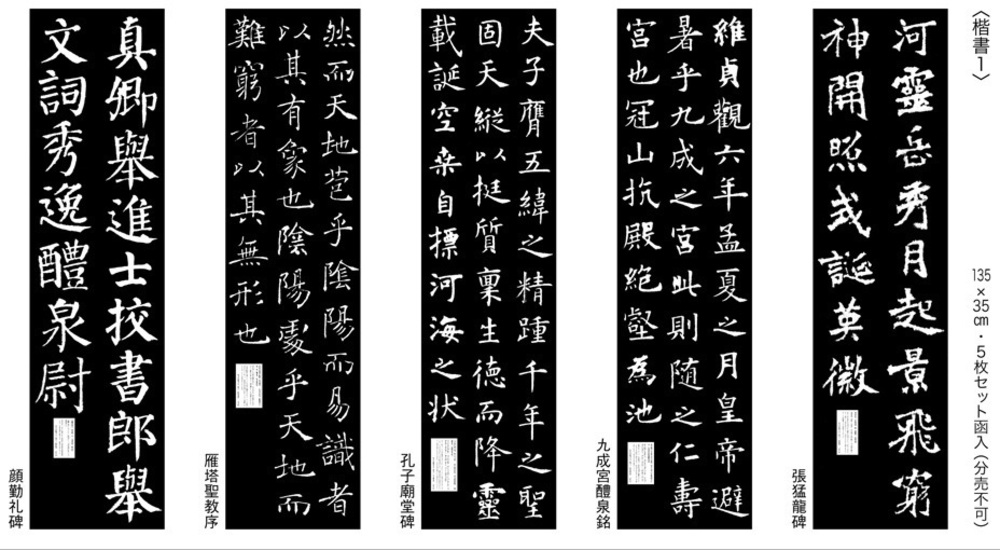 〈楷書1〉
135×35㎝・5枚セット函入(分売不可)
河靈岳秀月起景飛窮
神開照或誕英徽
張猛龍碑
維貞觀六年孟夏之月皇帝避
暑乎九成之宮此則隨之仁壽
宮也冠山抗殿絶壑為池
九成宮醴泉銘
夫子膺五緯之精踵千年之聖
固天縦以挺質稟生德而降靈
載誕空桒自摽河海之状
孔子廟堂碑
然而天地苞乎陰陽而易識者
以其有象也陰陽處乎天地而
難窮者以其無形也
雁塔聖教序
真卿舉進士挍書郎舉
文詞秀逸醴泉尉
顔勤礼碑